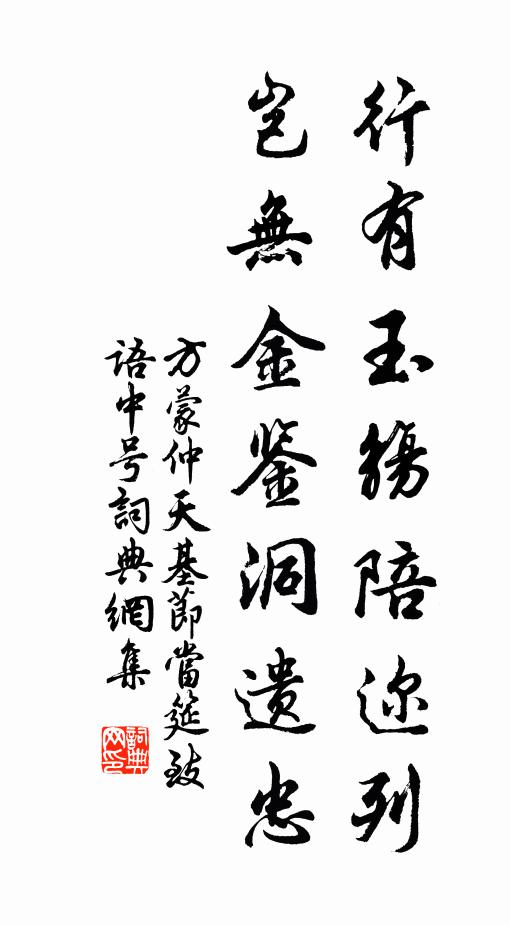 行有玉觴陪迩列
岂無金鉴洞遗忠
方蒙仲天基節當筵致
语中号詞典網集
詞典网印